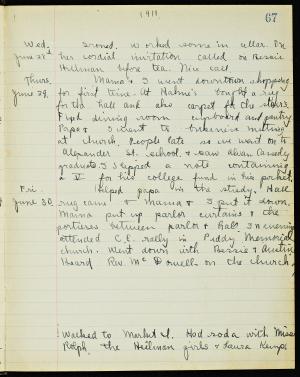 1911
67
Wed. ironed. Worked some in cellar. On
June 28. her cordial invitation called on Bessie
Heilman before tea. Nice call.
Thurs. Mama & I went downtown shopping
June 29. for first time. At Hahne's bought a rug
for the hall and also carpet for the stairs.
Fixed dining room cupboard and pantry
Papa & I went to business meeting
at church. People late so we went on to
Alexander St. school & saw Alvan Causely
graduate. I slipped a note containing
a V for his college fund in his pocket.
Fri. Helped papa in the study. Hall
June 30. rug came & mama & I put it down.
Mama put up parlor curtains & the
portieres between parlor & hall. In evening
attended C.E. rally in Peddy Memorial
church. Went down with Bessie & Austin
Heard Rev. Mc Dowell on the church,
Walked to Market St. Had soda with Miss
Ralph, the Heilman girls & Laura Kemp.